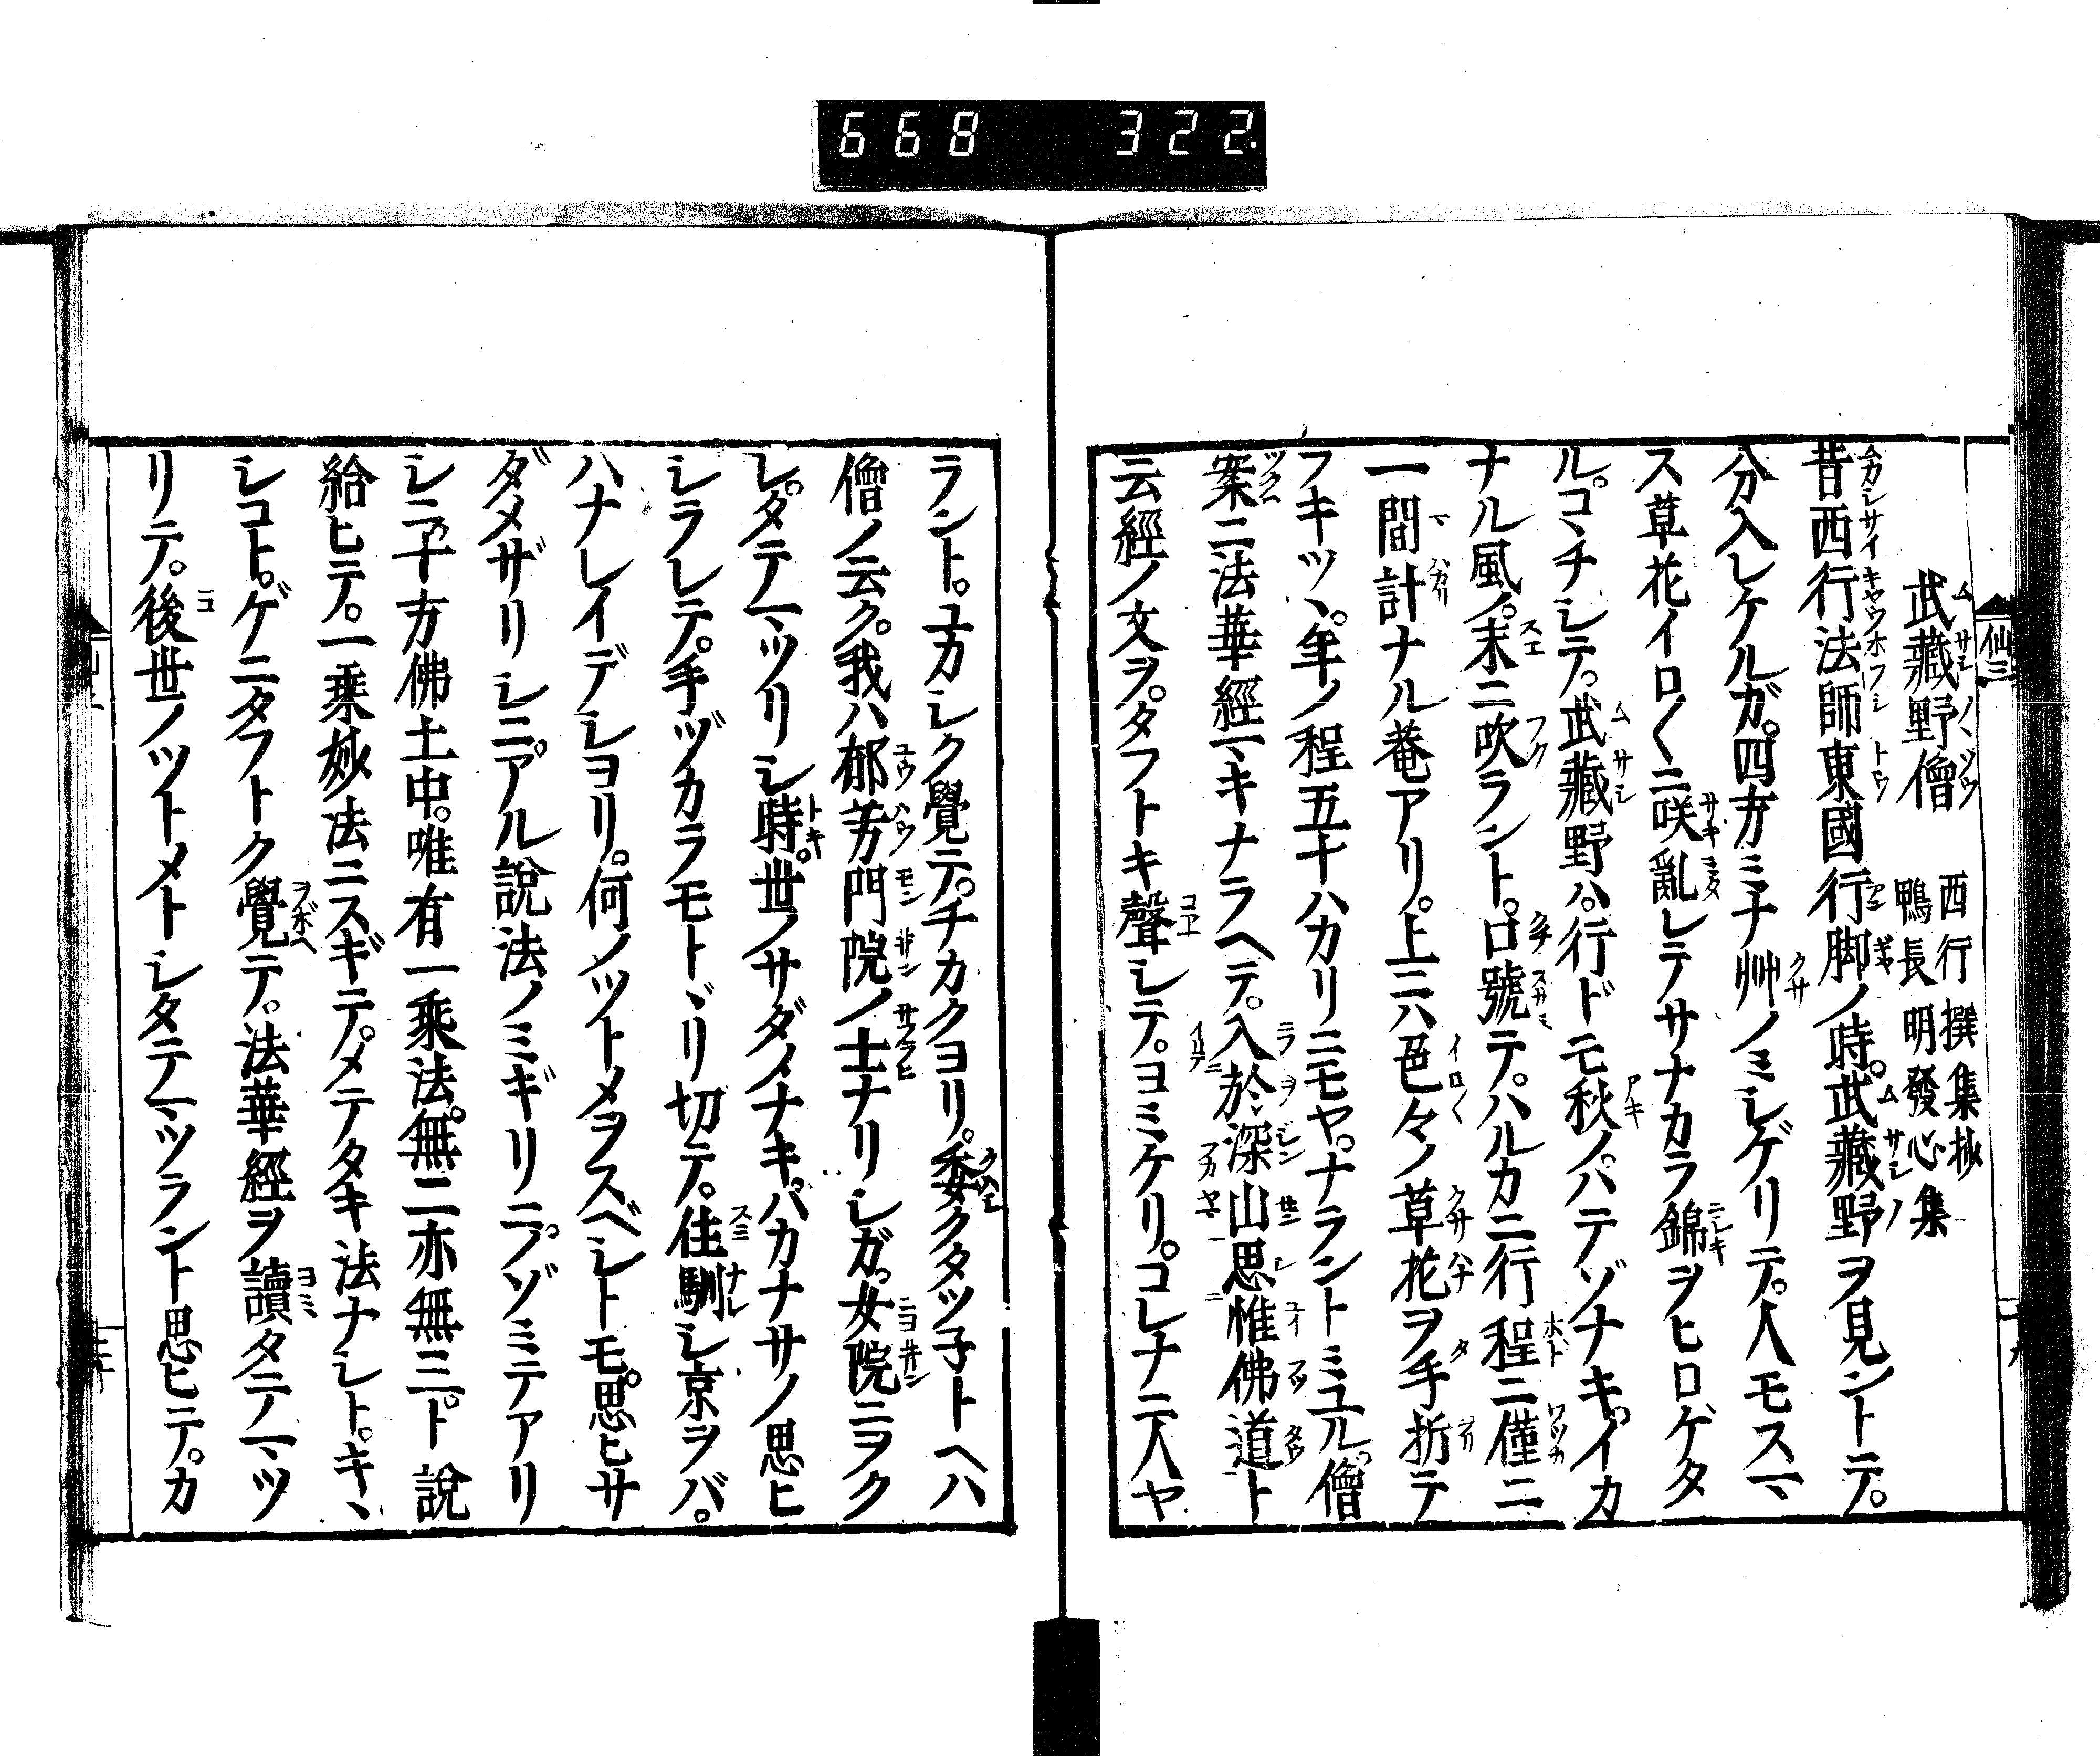 668 322.
仙三
武藏野僧 西行撰集抄
鴨長明發心集
昔西行法師東國行脚ノ時。武藏野ヲ見ントテ。
分入シケルガ。四方ミナ艸ノミシゲリテ。人モスマ
ス草花イロ〱ニ咲亂レテサナカラ錦ヲヒロゲタ
ル。コヽチシテ。武藏野ハ。行ドモ秋ノ。ハテゾナキ。イカ
ナル風ノ。末ニ吹ラント。口號テ。ハルカニ行程ニ僅ニ
一間計ナル菴アリ。上ニハ色々ノ草花ヲ手折テ
フキツヽ。年ノ程五十ハカリニモヤ。ナラントミユル。僧
案ニ法華經マキナラヘテ。入於深山思惟佛道ト
云經ノ文ヲ。タフトキ聲シテ。ヨミケリ。コレナニ人ヤ
ラント。ユカシク覺テ。チカクヨリ。委クタツ子トヘハ
僧ノ云ク。我ハ郁芳門院ノ士ナリシガ。女院ニヲク
レ。タテマツリシ時。世ノサダメナキ。ハカナサノ思ヒ
シラレテ。手ヅカラモトヾリ切テ。住馴シ京ヲバ。
ハナレイデシヨリ。何ノツトメヲスベシトモ。思ヒサ
ダメザリシニ。アル說法ノミギリニ。ノゾミテアリ
シニ。十方佛土中。唯有一乘法。無二亦無三。ト說
給ヒテ。一乘妙法ニスギテ。メテタキ法ナシト。キヽ
シコト。ゲニタフトク覺テ。法華經ヲ讀タテマツ
リテ。後世ノツトメトシタテマツラント思ヒテ。カ